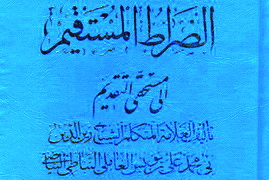 الصراط المستقيم
الى مستحقى التقديم
تأليف العلامة المتكلم الشيخ زين الدين
ابى محمد على بن يونس العاملى النباطى البياضى